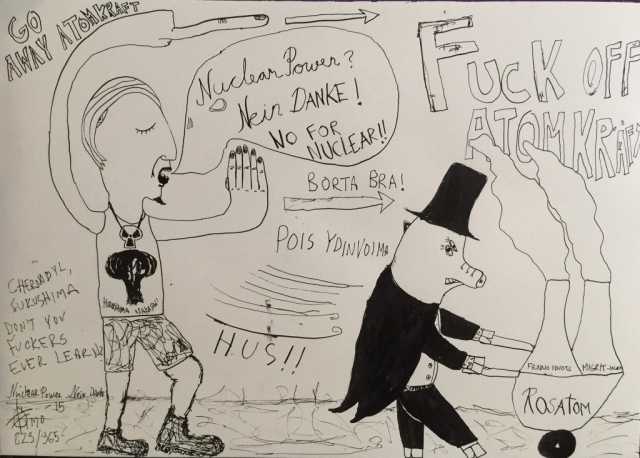 GO
AWAY ATOMKRAFT
Nuclear Power?
Nein DANKE!
NO FOR
NUCLEAR!!
FUCK OFF
ATOMKRAFT
BORTA BRA!
POIS YDINVOIMA
HUS!!
CHERNOBYL,
FUKUSHIMA
DON'T YOU
FUCKERS
EVER LEARN
IDIOTS
ROSATOM
Nuclear Power Nein Danke
-15
223/365